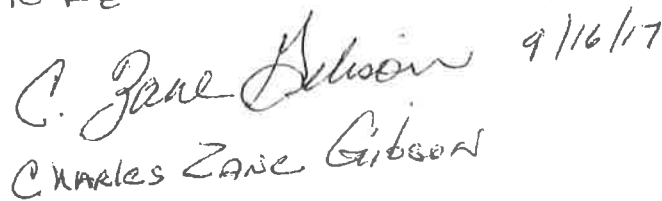 C. Zane Gibson 9/16/17
Charles Zane Gibson